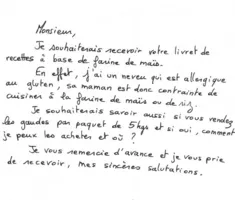 Monsieur,
Je souhaiterais recevoir votre livret de
recettes à base de farine de maïs.
En effet, j'ai un neveu qui est allergique
au gluten, sa maman est donc contrainte de
cuisiner à la farine de maïs ou de riz.
Je souhaiterais savoir aussi si vous vendez
les gaudes par paquet de 5 kgs et si oui, comment
je peux les acheter et où ?
Je vous remercie d'avance et je vous prie
de recevoir, mes sincères salutations.